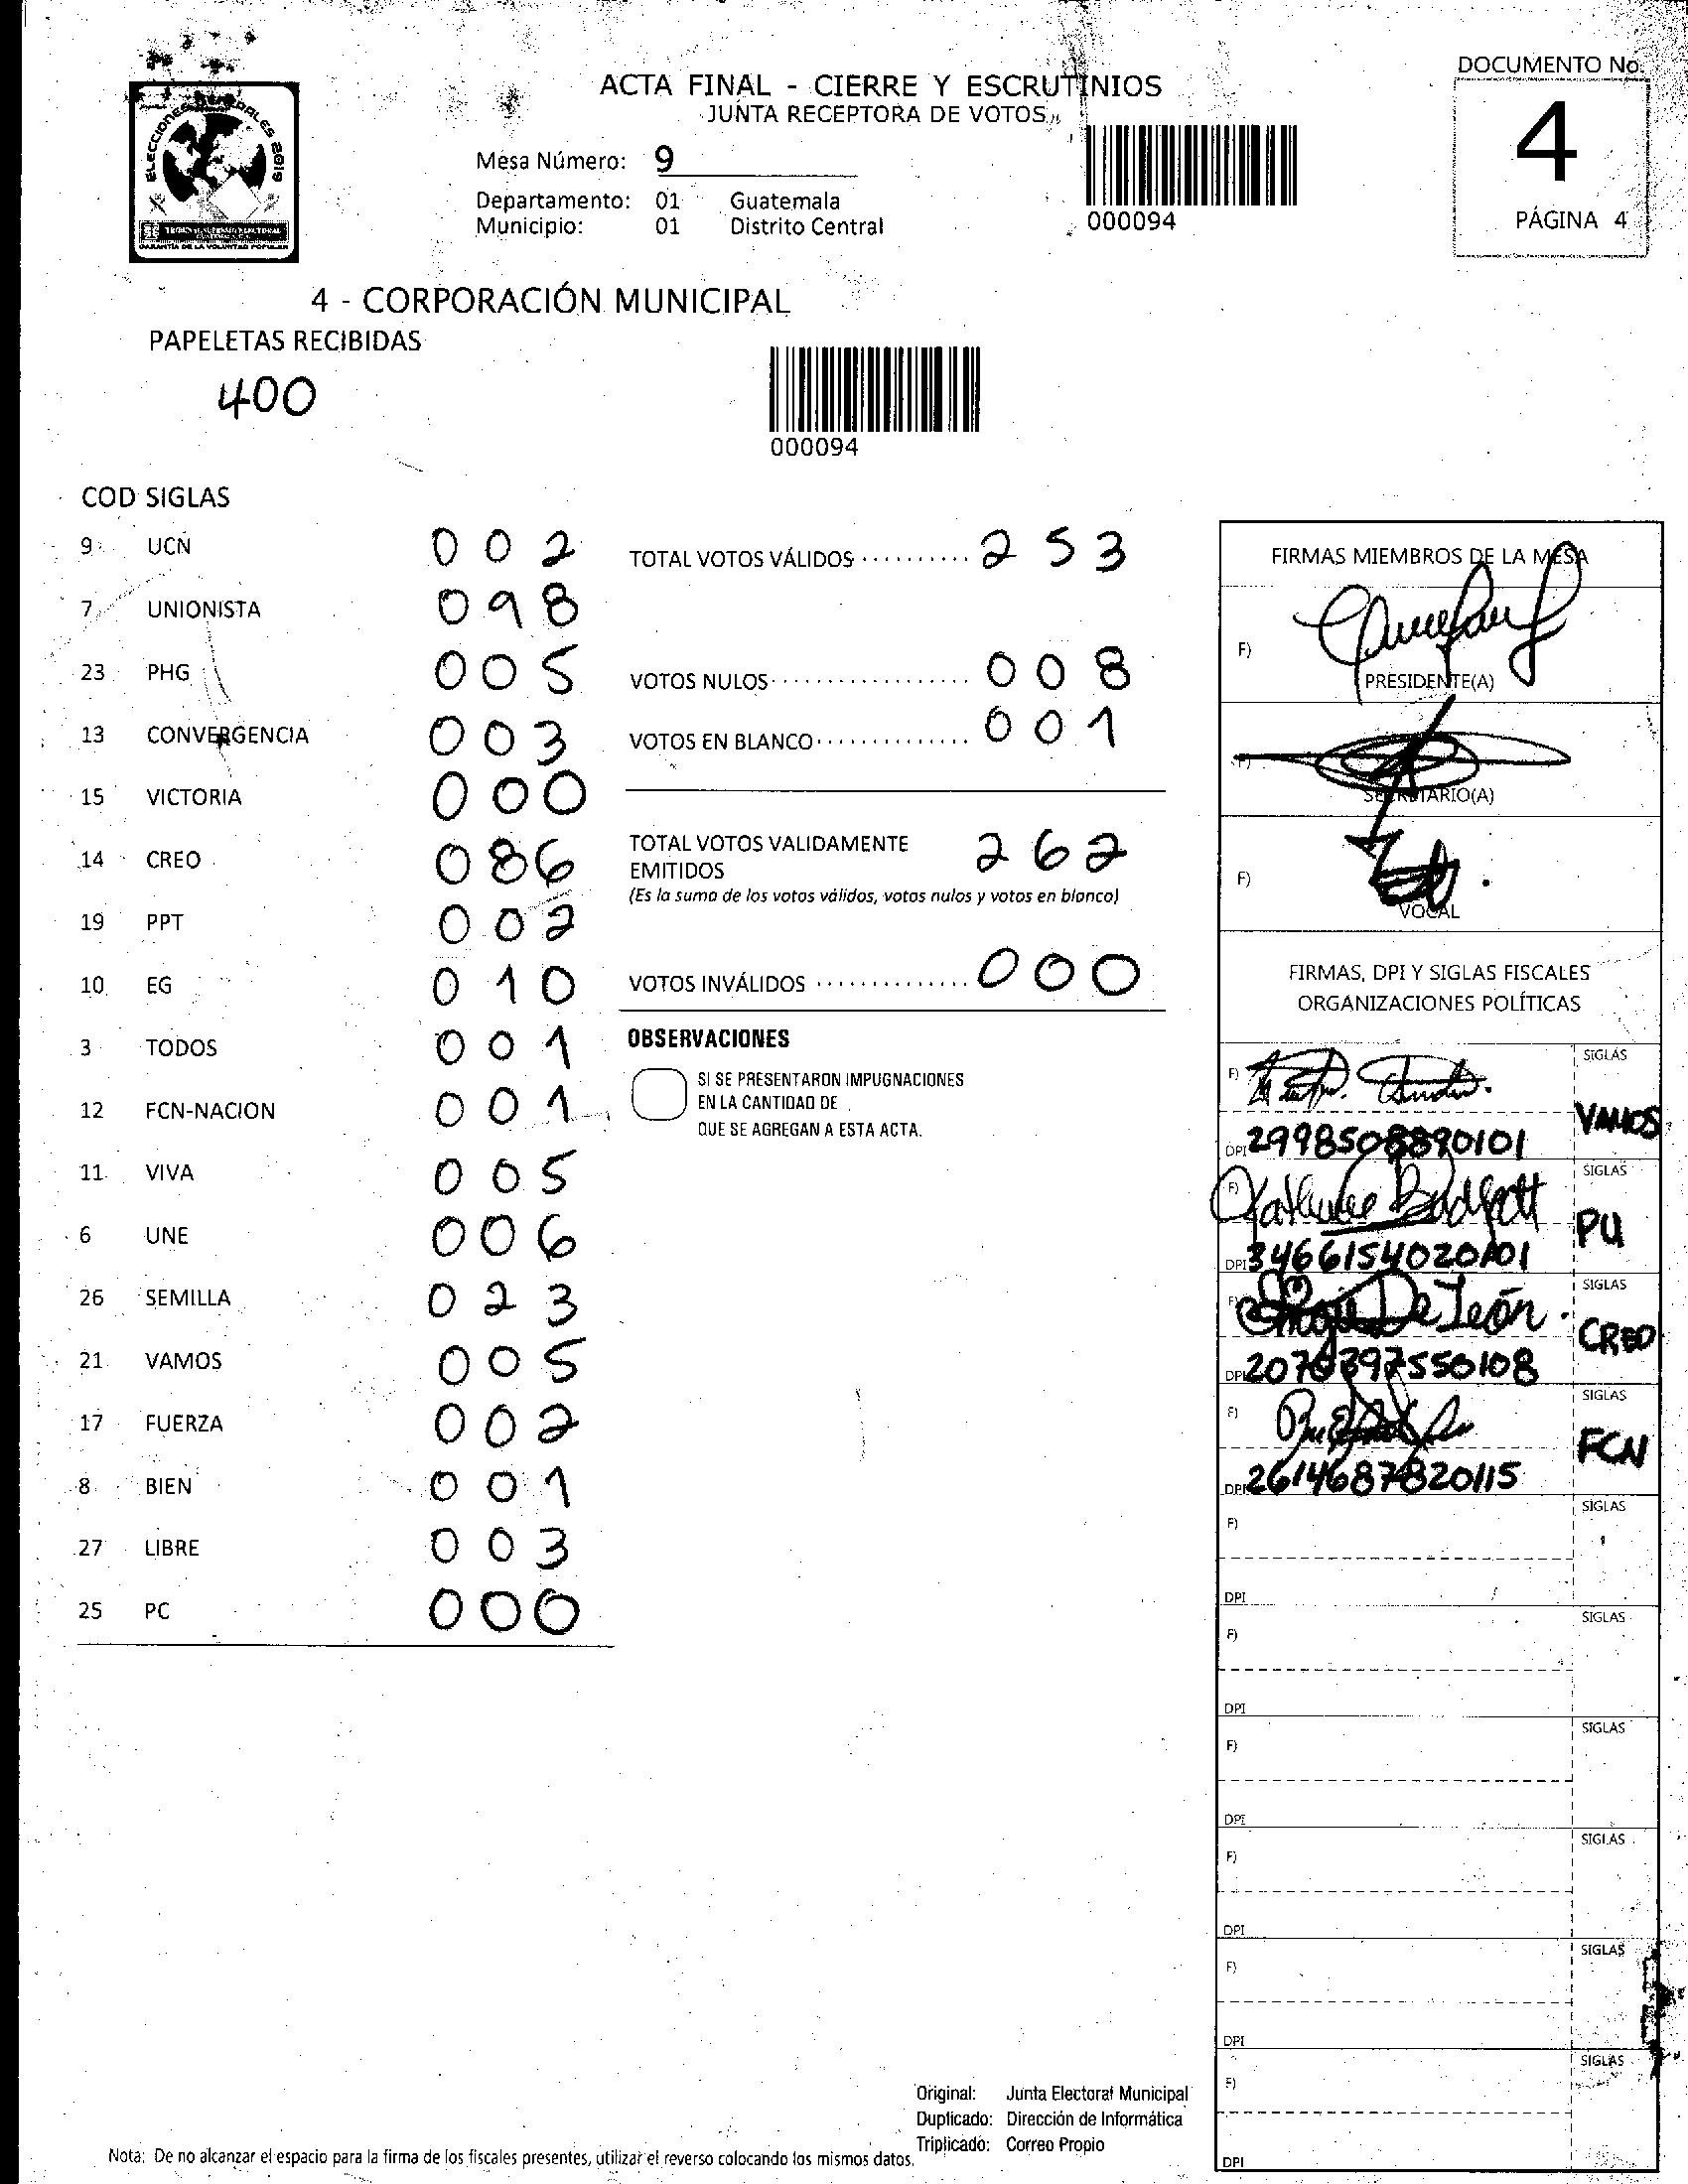 DOCUMENTO No.
4
PÁGINA 4
ELECCIONES GENERALES 2019
TRIBUNAL SUPREMO ELECTORAL
GARANTÍA DE LA VOLUNTAD POPULAR
ACTA FINAL - CIERRE Y ESCRUTINIOS
JUNTA RECEPTORA DE VOTOS
Mesa Número: 9
Departamento: 01 Guatemala
Municipio: 01 Distrito Central
000094
4 - CORPORACIÓN MUNICIPAL
PAPELETAS RECIBIDAS
400
000094
COD SIGLAS
9 UCN 002
7 UNIONISTA 098
23 PHG 005
13 CONVERGENCIA 003
15 VICTORIA 000
14 CREO 086
19 PPT 002
10 EG 010
3 TODOS 001
12 FCN-NACION 001
11 VIVA 005
6 UNE 006
26 SEMILLA 023
21 VAMOS 005
17 FUERZA 002
8 BIEN 001
27 LIBRE 003
25 PC 000
TOTAL VOTOS VÁLIDOS .......... 253
VOTOS NULOS ................. 008
VOTOS EN BLANCO ............. 001
TOTAL VOTOS VALIDAMENTE
EMITIDOS 262
(Es la suma de los votos válidos, votos nulos y votos en blanco)
VOTOS INVÁLIDOS .............. 000
OBSERVACIONES
SI SE PRESENTARON IMPUGNACIONES
EN LA CANTIDAD DE
QUE SE AGREGAN A ESTA ACTA.
FIRMAS MIEMBROS DE LA MESA
F)
PRESIDENTE(A)
F)
SECRETARIO(A)
F)
VOCAL
FIRMAS, DPI Y SIGLAS FISCALES
ORGANIZACIONES POLÍTICAS
F) SIGLAS
VAMOS
DPI 2998508890101
F) SIGLAS
PU
DPI 3466154020101
F) De León. SIGLAS
CREO
DPI
F) SIGLAS
FCN
DPI 2614687820115
F) SIGLAS
DPI
F) SIGLAS
DPI
F) SIGLAS
DPI
F) SIGLAS
DPI
F) SIGLAS
DPI
F) SIGLAS
DPI
Original: Junta Electoral Municipal
Duplicado: Dirección de Informática
Triplicado: Correo Propio
Nota: De no alcanzar el espacio para la firma de los fiscales presentes, utilizar el reverso colocando los mismos datos.